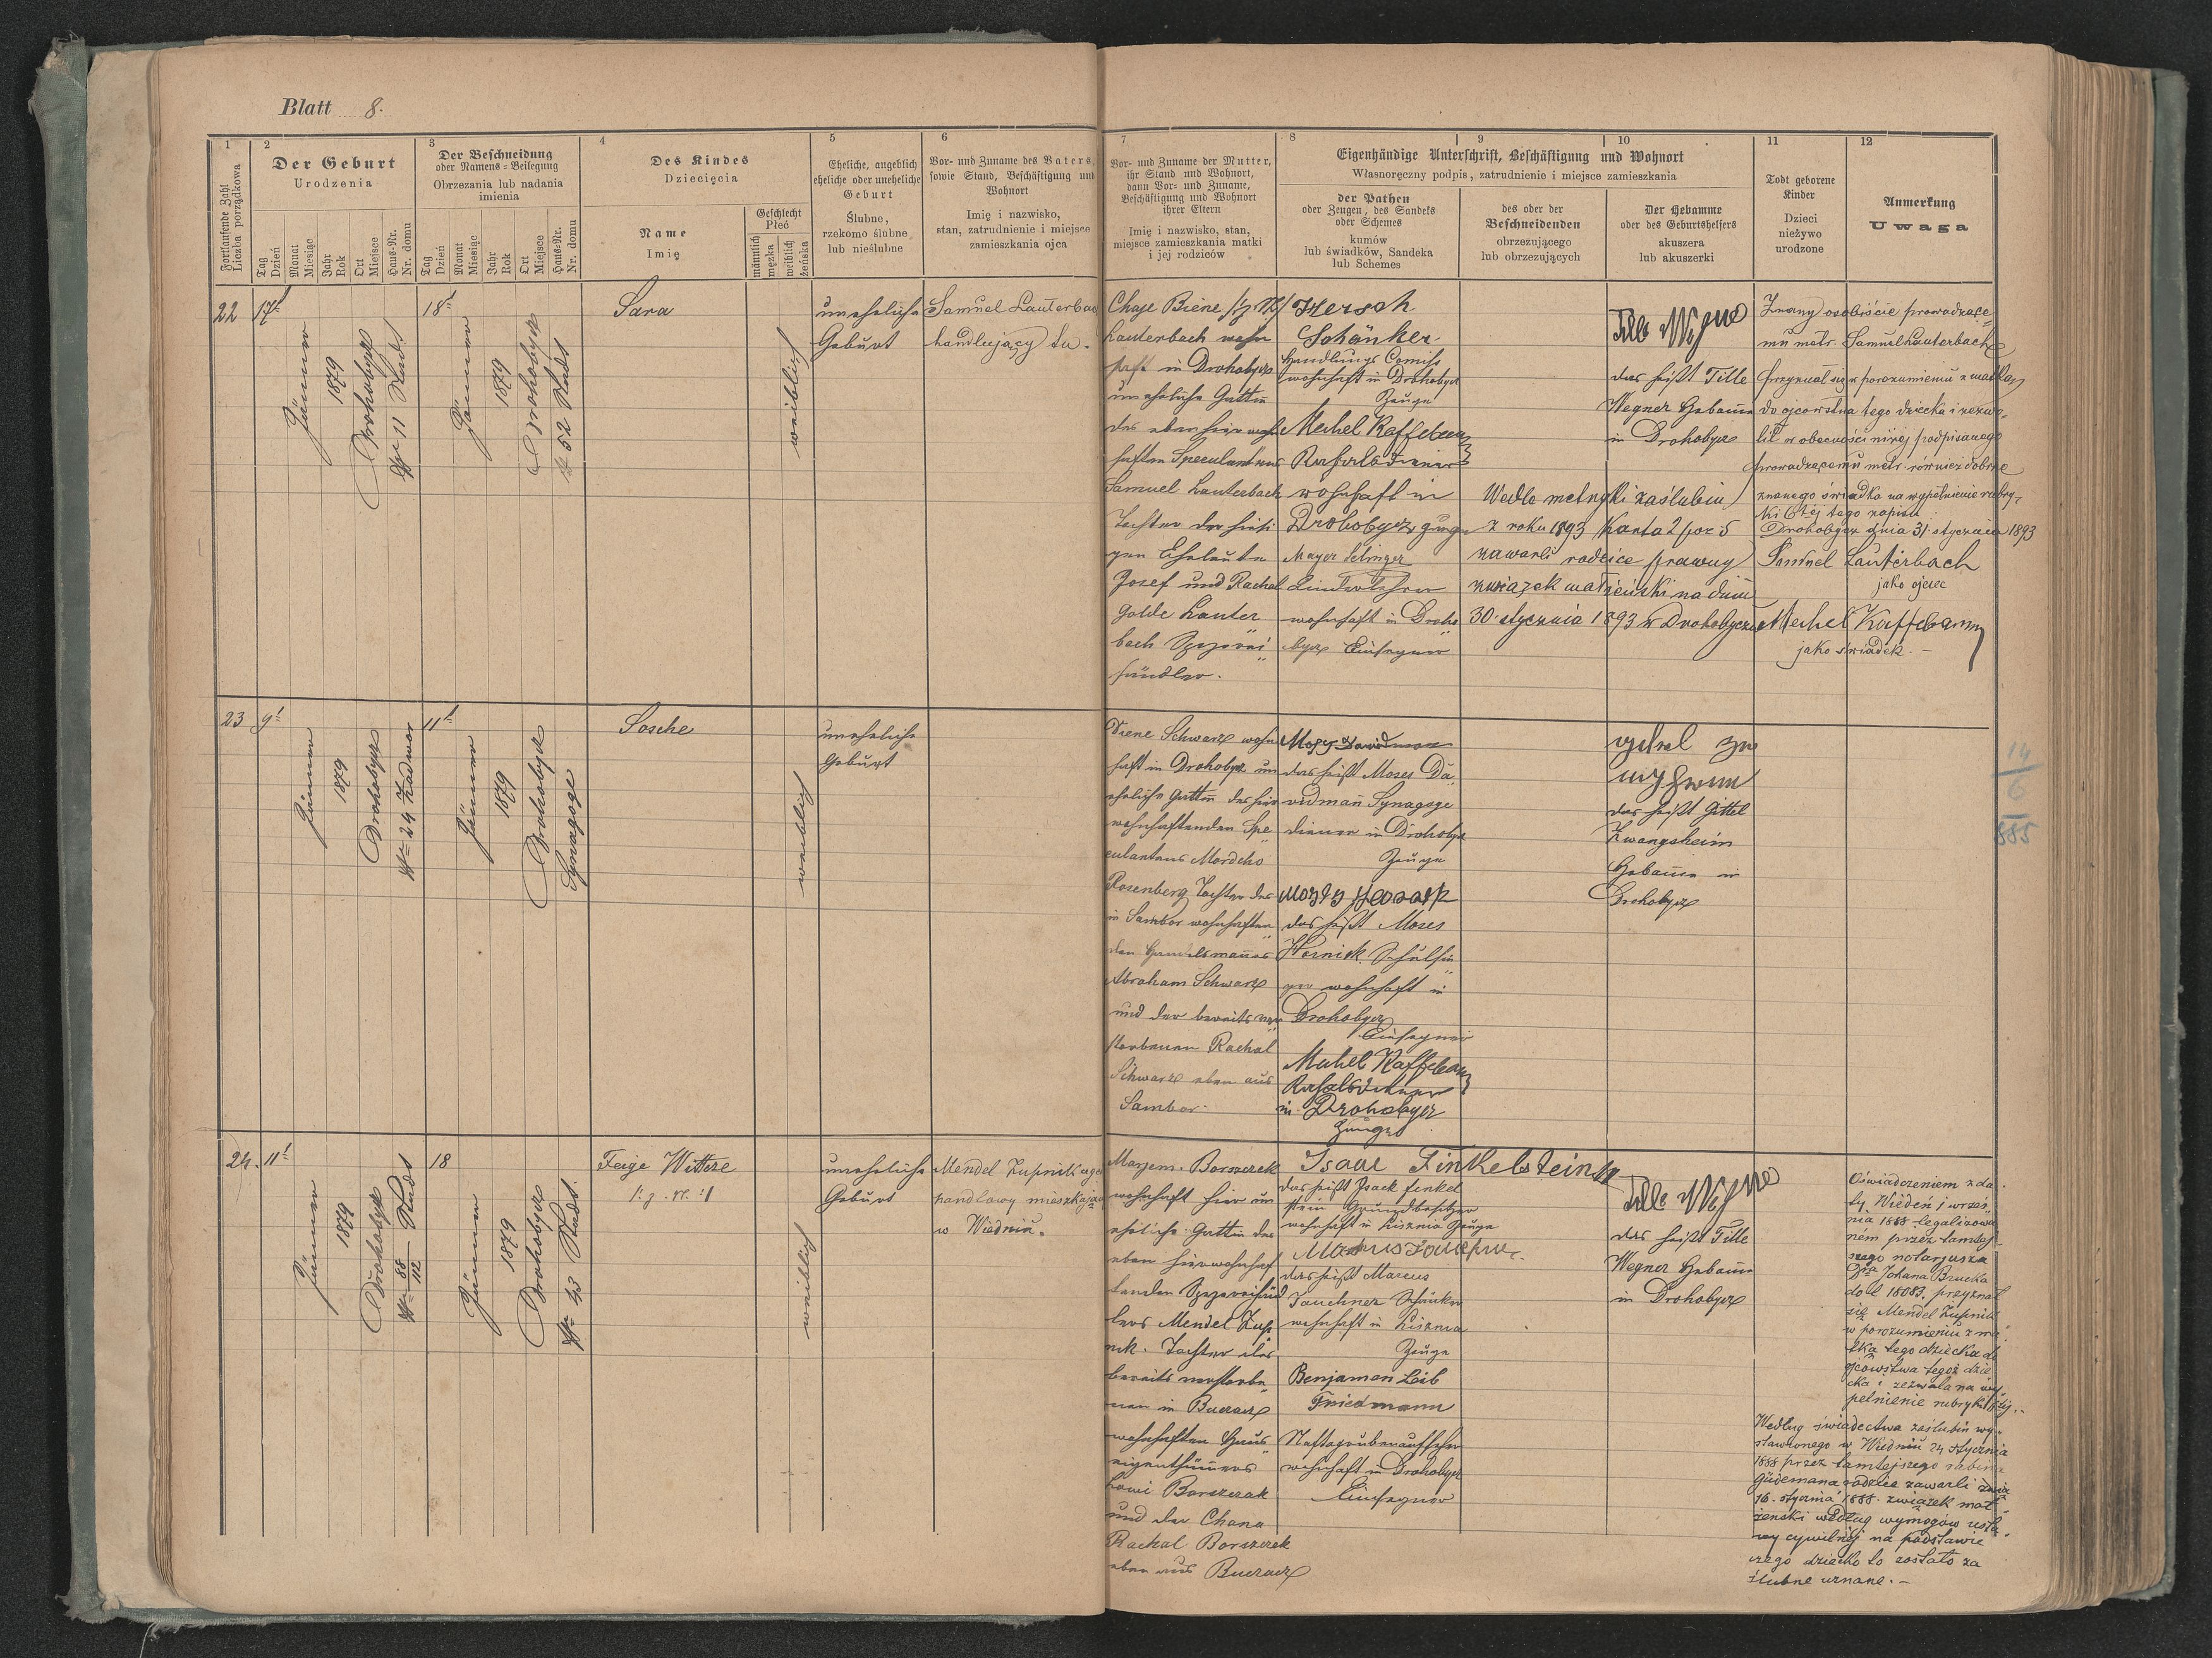 Blatt 8.
1
2
3
4
5
6
7
8
9
10
11
12
Fortlaufende Zahl
Liczba porządkowa
Der Geburt
Urodzenia
Tag
Dzień
Monat
Miesiąc
Jahr
Rok
Ort
Miejsce
Haus-Nr.
Nr. domu
Der Beschneidung
oder Namens-Beilegung
Obrzezania lub nadania
imienia
Tag
Dzień
Monat
Miesiąc
Jahr
Rok
Ort
Miejsce
Haus-Nr.
Nr. domu
Des Kindes
Dziecięcia
Name
Imię
Geschlecht
Płeć
männlich
męzka
weiblich
żeńska
Eheliche, angeblich
eheliche oder uneheliche
Geburt
Ślubne,
rzekomo ślubne
lub nieślubne
Vor- und Zuname des Vaters,
sowie Stand, Beschäftigung und
Wohnort
Imię i nazwisko,
stan, zatrudnienie i miejsce
zamieszkania ojca
Vor- und Zuname der Mutter,
ihr Stand und Wohnort,
dann Vor- und Zuname,
Beschäftigung und Wohnort
ihrer Eltern
Imię i nazwisko, stan,
miejsce zamieszkania matki
i jej rodziców
Eigenhändige Unterschrift, Beschäftigung und Wohnort
Własnoręczny podpis, zatrudnienie i miejsce zamieszkania
der Pathen
oder Zeugen, des Sandeks
oder Schemes
kumów
lub świadków, Sandeka
lub Schemes
des oder der
Beschneidenden
obrzezującego
lub obrzezujących
Der Hebamme
oder des Geburtshelfers
akuszera
lub akuszerki
Todt geborene
Kinder
Dzieci
nieżywo
urodzone
Anmerkung
Uwaga
22
17t
Jänner
1879
Drohobycz
Nr 11 Stadt
18t
Jänner
1879
Drohobycz
52 Stadt
Sara
weiblich
uneheliche
Geburt
Samuel Lauterbach
handlujący tu.
Chaje Biene
Lauterbach wohn
haft in Drohobycz
uneheliche Gattin
des eben hier wohn
haften Speculanten
Samuel Lauterbach
Tochter der hiesi
gen Eheleute
Josef und Rachel
Golde Lauter
bach Spezerei
händler.
Hersch
Schänker
Handlungs Comis
wohnhaft in Drohobycz
Zeuge
Mechel Kaffebaum
wohnhaft in
Drohobycz Zeuge
Mayer
Kinderlehrer
wohnhaft in Droho
bycz Einsegner
Wedle metryki zaślubin
z roku 1893 Karta 2 poz 5
zawarli rodzice prawny
związek małżeński na dniu
30. stycznia 1893 w Drohobyczu
Tille Wegne
das heißt Tille
Wegner Hebamme
in Drohobycz
Znany osobiście prowadzące
mu metr. Samuel Lauterbach
przyznał się w porozumieniu z matką
do ojcowstwa tego dziecka i zezwo
lił w obecności niżej podpisanego
prowadzącemu metr. również dobrze
znanego świadka na wypełnienie rubry
ki 6tej tego zapisu
Drohobycz dnia 31. stycznia 1893
Samuel Lauterbach
jako ojciec
Mechel Kaffebaum
jako świadek.
23
9t
Jänner
1879
Drohobycz
Nr 24 Zadwor
11t
Jänner
1879
Drohobycz
Synagoge
Sosche
weiblich
uneheliche
Geburt
Diene Schwarz wohn
haft in Drohobycz un
eheliche Gattin des hier
wohnhaftenden Spe
culantens Mordcho
Rosenberg Tochter des
in Sambor wohnhaften
den Handelsmannes
Abraham Schwarz
und der bereits ver
storbenen Rachel
Schwarz eben aus
Sambor.
das heißt Moses Da
vidmann Synagoge
diener in Drohobycz
Zeuge
das heißt Moses
Hornick Schulsin
ger wohnhaft in
Drohobycz
Einsegner
Mechel Kaffebaum
in Drohobycz
Zeuge
das heißt Gittel
Zwangsheim
Hebamme in
Drohobycz
14
6
885
24.
11t
Jänner
1879
Drohobycz
Nr 88/112 Stadt
18
Jänner
1879
Drohobycz
Nr 43 Stadt.
Feige Wittze
weiblich
uneheliche
Geburt
Mendel Zupnik agent
handlowy mieszkając
w Wiedniu.
Marjem Borszczak
wohnhaft hier un
eheliche Gattin des
eben hierwohnhaf
tenden Spezereihänd
lers Mendel Zup
nik. Tochter des
bereits verstorbe
nen in Buczacz
wohnhaften Haus
eigenthümers
Lowi Borszczak
und der Chana
Rachel Borszczak
eben aus Buczacz
Isaac Finkelstein
das heißt Isack Finkel
stein Grundbesitzer
wohnhaft in Lisznia Zeuge
das heißt Marcus
Jauchner Schänker
wohnhaft in Lisznia
Zeuge
Benjamen Leib
Friedmann
Naftagrubenaufseher
wohnhaft in Drohobycz
Einsegner
Tille Wegne
das heißt Tille
Wegner Hebamme
in Drohobycz
Oświadczeniem z da
ty Wiedeń 1 wrześ
nia 1888 legalizowa
nem przez tamtej
szego notarjusza
Dra Johana Brucka
do l 18083. przyznał
się Mendel Zupnik
w porozumieniu z ma
tką tego dziecka do
ojcowstwa tegoż dzie
cka i zezwala na wy
pełnienie rubryki 6tej.
Według świadectwa zaślubin wy
stawionego w Wiedniu 24 stycznia
1888 przez tamtejszego rabina
Güdemana rodzice zawarli dnia
16. stycznia 1888. związek mał
żeński według wymogów usta
wy cywilnej na podstawie
czego dziecko to zostało za
ślubne uznane.